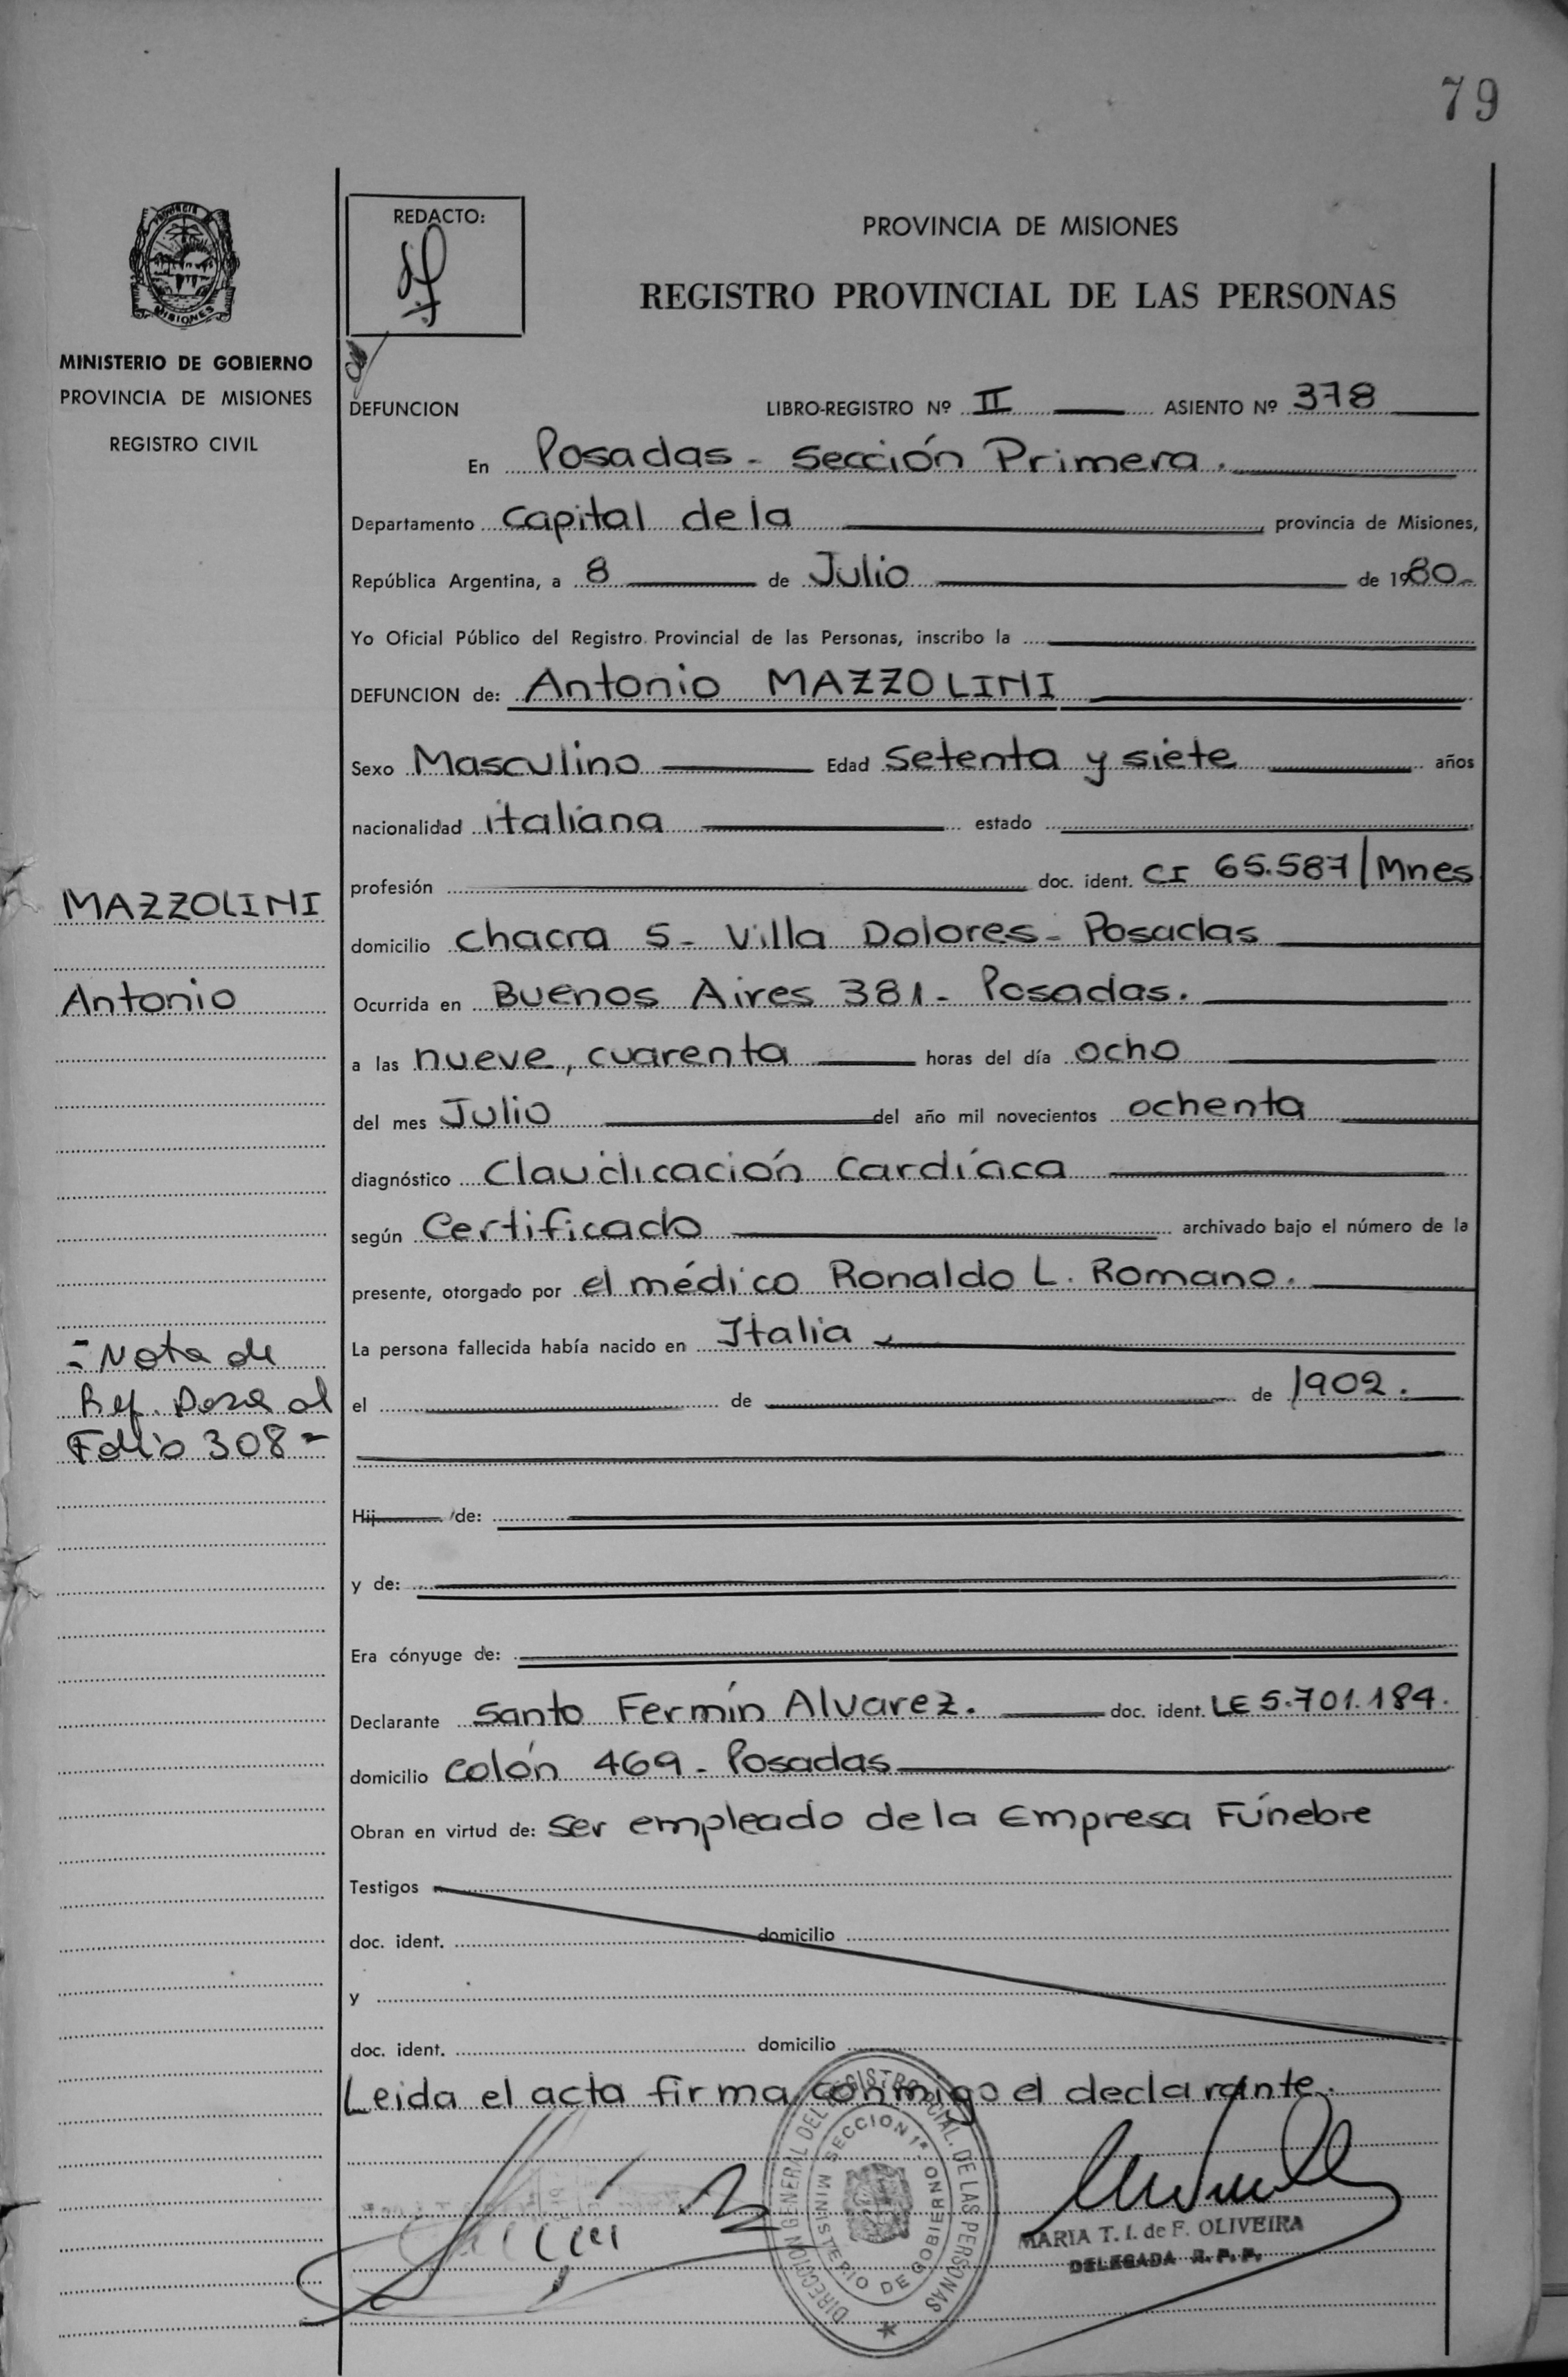 79
PROVINCIA
MISIONES
MINISTERIO DE GOBIERNO
PROVINCIA DE MISIONES
REGISTRO CIVIL
REDACTO:
PROVINCIA DE MISIONES
REGISTRO PROVINCIAL DE LAS PERSONAS
DEFUNCION LIBRO-REGISTRO Nº II ASIENTO Nº 378
En Posadas - Sección Primera.
Departamento Capital de la provincia de Misiones,
República Argentina, a 8 de Julio de 1980-
Yo Oficial Público del Registro Provincial de las Personas, inscribo la
DEFUNCION de: Antonio MAZZOLINI
Sexo Masculino Edad Setenta y siete años
nacionalidad italiana estado
profesión doc. ident. CI 65.587/Mnes
domicilio chacra 5- Villa Dolores- Posadas
Ocurrida en Buenos Aires 381- Posadas.
a las nueve, cuarenta horas del día ocho
del mes Julio del año mil novecientos ochenta
diagnóstico Claudicación Cardíaca
según Certificado archivado bajo el número de la
presente, otorgado por el médico Ronaldo L. Romano.
La persona fallecida había nacido en Italia
el de de 1902.
Hij de:
y de:
Era cónyuge de:
Declarante Santo Fermín Alvarez. doc. ident. LE 5.701.184.
domicilio Colón 469 - Posadas
Obran en virtud de: ser empleado de la Empresa Fúnebre
Testigos
doc. ident. domicilio
y
doc. ident. domicilio
Leida el acta firma conmigo el declarante.
MAZZOLINI
Antonio
- Nota de
Ref. al
Folio 308-
DIRECCION GENERAL DEL REGISTRO PCIAL. DE LAS PERSONAS
SECCION 1ª
MINISTERIO DE GOBIERNO
MARIA T. I. de F. OLIVEIRA
DELEGADA R. P. P.